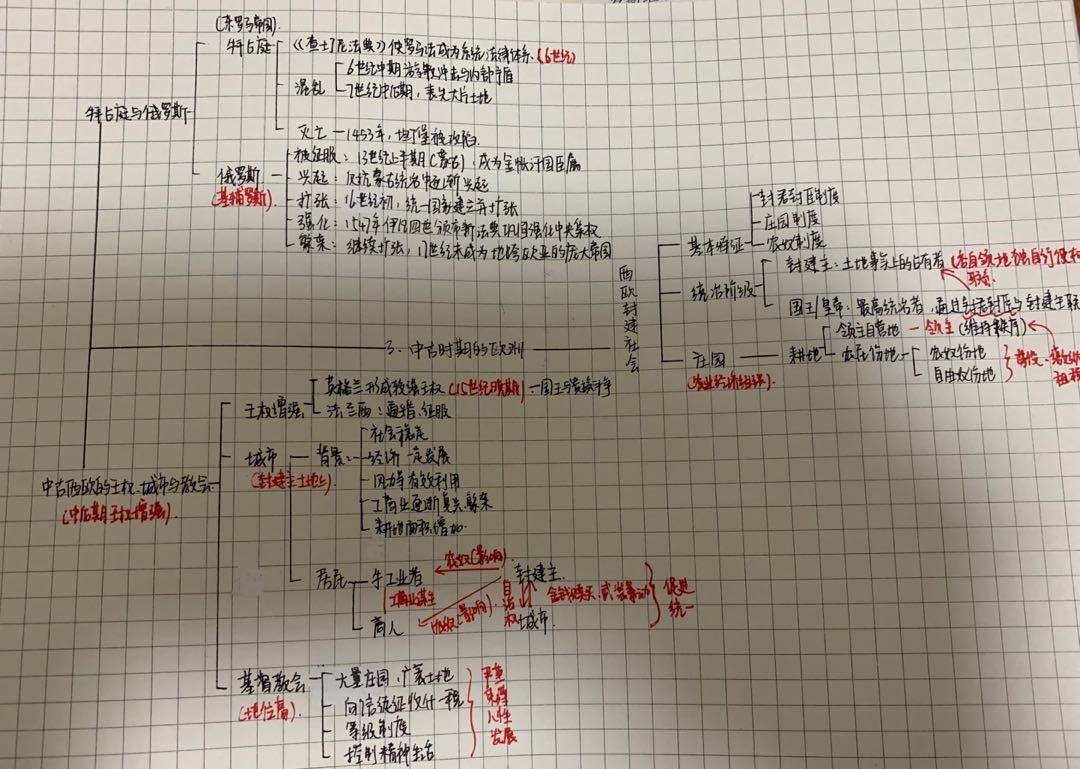 (东罗马帝国)
拜占庭
《查士丁尼法典》使罗马法成为系统法律体系 (6世纪)
6世纪中期
冲击与内部矛盾
混乱
7世纪中后期，丧失大片土地
灭亡 — 1453年，
堡被攻陷
拜占庭与俄罗斯
俄罗斯
(基辅罗斯)
被征服：13世纪上半期(蒙古)，成为金帐汗国臣属
兴起：反抗蒙古统治中逐渐兴起
扩张：16世纪初，统一国家建立并扩张
强化：1547年伊凡四世颁布新法典巩固强化中央集权
继续扩张，17世纪末成为地跨欧亚的庞大帝国
3、中古时期的欧洲
西欧封建社会
基本特征
封君封臣制度
庄园制度
农奴制度
统治阶级
封建主：土地事实上的占有者
国王/皇帝：最高统治者，通过封君封臣与封建主联
庄园
耕地
领主自营地 — 领主(维持秩序)
农民份地
农奴份地
自由农份地
中古西欧的王权、城市与教会
(中后期王权增强)
王权增强
英格兰形成较强王权 (15世纪晚期)
国王与贵族斗争
法兰西：通婚、征服
城市
(封建主土地上)
背景
社会稳定
经济一定发展
风力等有效利用
工商业逐渐复兴繁荣
耕地面积增加
居民
手工业者
商人
农奴(影响)
封建主
自治权
城市
金钱赎买、武装暴动
促进统一
基督教会
(地位高)
大量庄园、广袤土地
向信徒征收什一税
等级制度
控制精神生活
严重
人性
发展